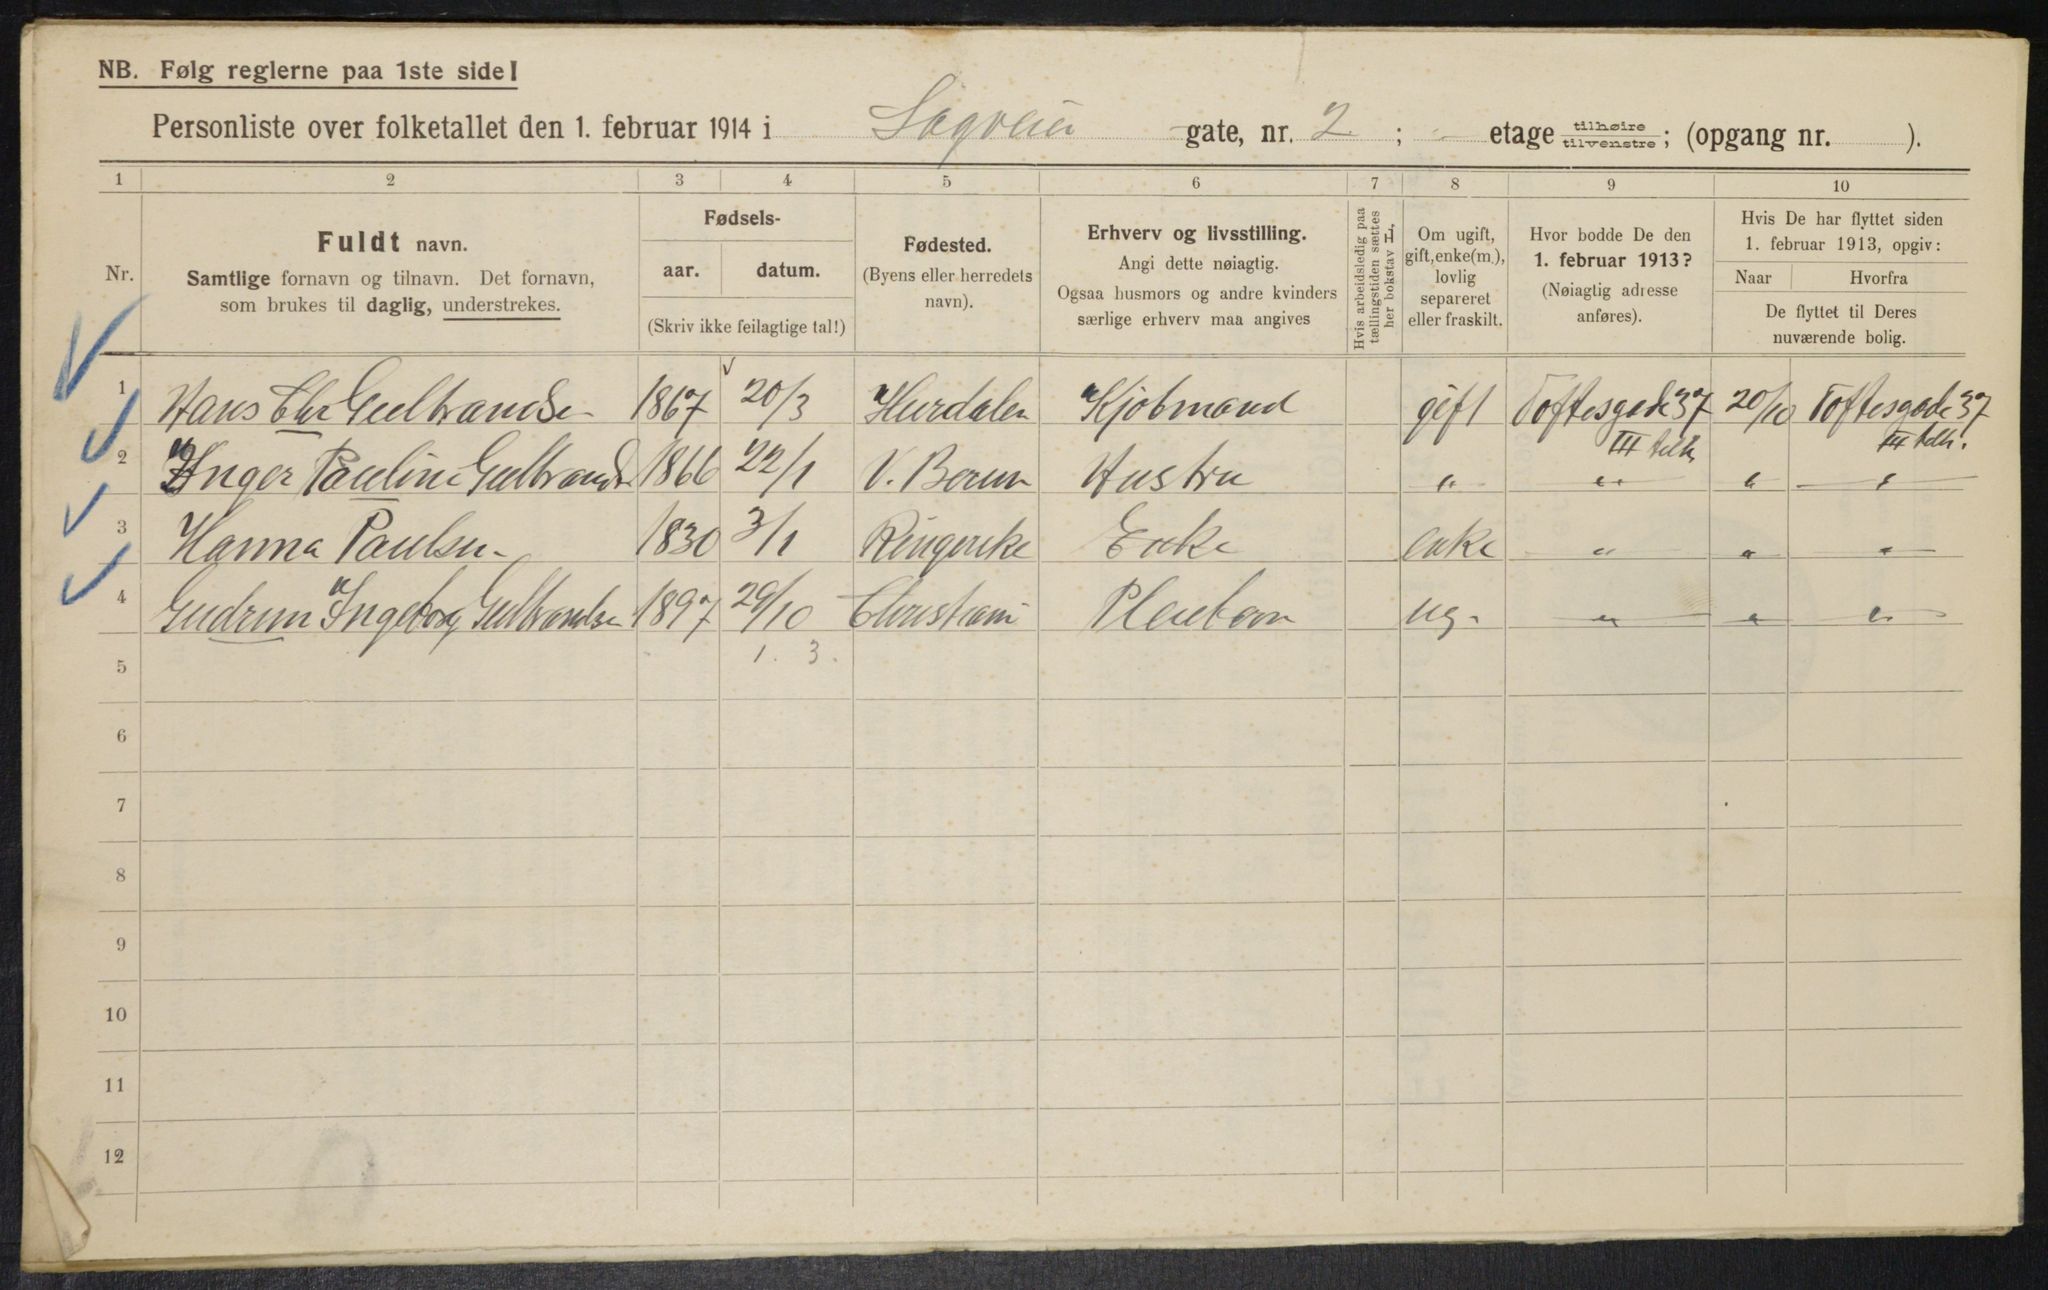 NB. Følg reglerne paa 1ste side!
Personliste over folketallet den 1. februar 1914 i Sagveien gate, nr. 2 ; - etage tilhøire/tilvenstre; (opgang nr. ).
1 2 3 4 5 6 7 8 9 10
Nr.
Fuldt navn.
Samtlige fornavn og tilnavn. Det fornavn,
som brukes til daglig, understrekes.
Fødsels-
aar. datum.
(Skriv ikke feilagtige tal!)
Fødested.
(Byens eller herredets
navn).
Erhverv og livsstilling.
Angi dette nøiagtig.
Ogsaa husmors og andre kvinders
særlige erhverv maa angives
Hvis arbeidsledig paa
tællingstiden sættes
her bokstav L.
Om ugift,
gift, enke(m.),
lovlig
separeret
eller fraskilt.
Hvor bodde De den
1. februar 1913?
(Nøiagtig adresse
anføres).
Hvis De har flyttet siden
1. februar 1913, opgiv:
Naar Hvorfra
De flyttet til Deres
nuværende bolig.
1 Hans Chr Gulbrandsen 1867 20/3 Hurdalen Kjøbmand gift Toftesgade 37 20/10 Toftesgade 37
III tilh. III tilh.
2 Inger Pauline Gulbrands 1866 22/1 V. Bærum Hustru " " " "
3 Hanna Paulsen 1830 3/1 Ringerike Enke enke " " "
4 Gudrun Ingeborg Gulbrandsen 1897 29/10 Christiani Pleiebarn ug. " " "
1. 3.
5
6
7
8
9
10
11
12